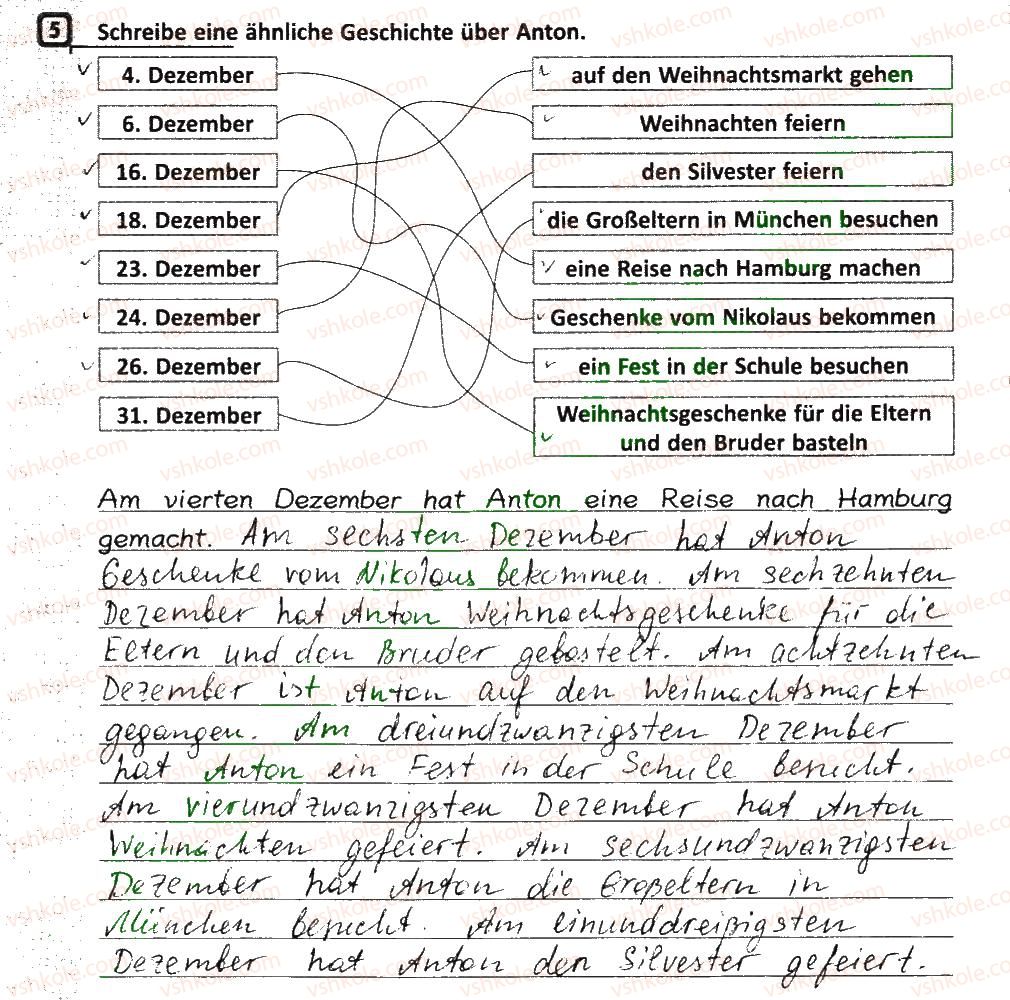 5 Schreibe eine ähnliche Geschichte über Anton.
4. Dezember
6. Dezember
16. Dezember
18. Dezember
23. Dezember
24. Dezember
26. Dezember
31. Dezember
auf den Weihnachtsmarkt gehen
Weihnachten feiern
den Silvester feiern
die Großeltern in München besuchen
eine Reise nach Hamburg machen
Geschenke vom Nikolaus bekommen
ein Fest in der Schule besuchen
Weihnachtsgeschenke für die Eltern
und den Bruder basteln
Am vierten Dezember hat Anton eine Reise nach Hamburg
gemacht. Am sechsten Dezember hat Anton
Geschenke vom Nikolaus bekommen. Am sechzehnten
Dezember hat Anton Weihnachtsgeschenke für die
Eltern und den Bruder gebastelt. Am achtzehnten
Dezember ist Anton auf den Weihnachtsmarkt
gegangen. Am dreiundzwanzigsten Dezember
hat Anton ein Fest in der Schule besucht.
Am vierundzwanzigsten Dezember hat Anton
Weihnachten gefeiert. Am sechsundzwanzigsten
Dezember hat Anton die Großeltern in
München besucht. Am einunddreißigsten
Dezember hat Anton den Silvester gefeiert.
vshkole.com